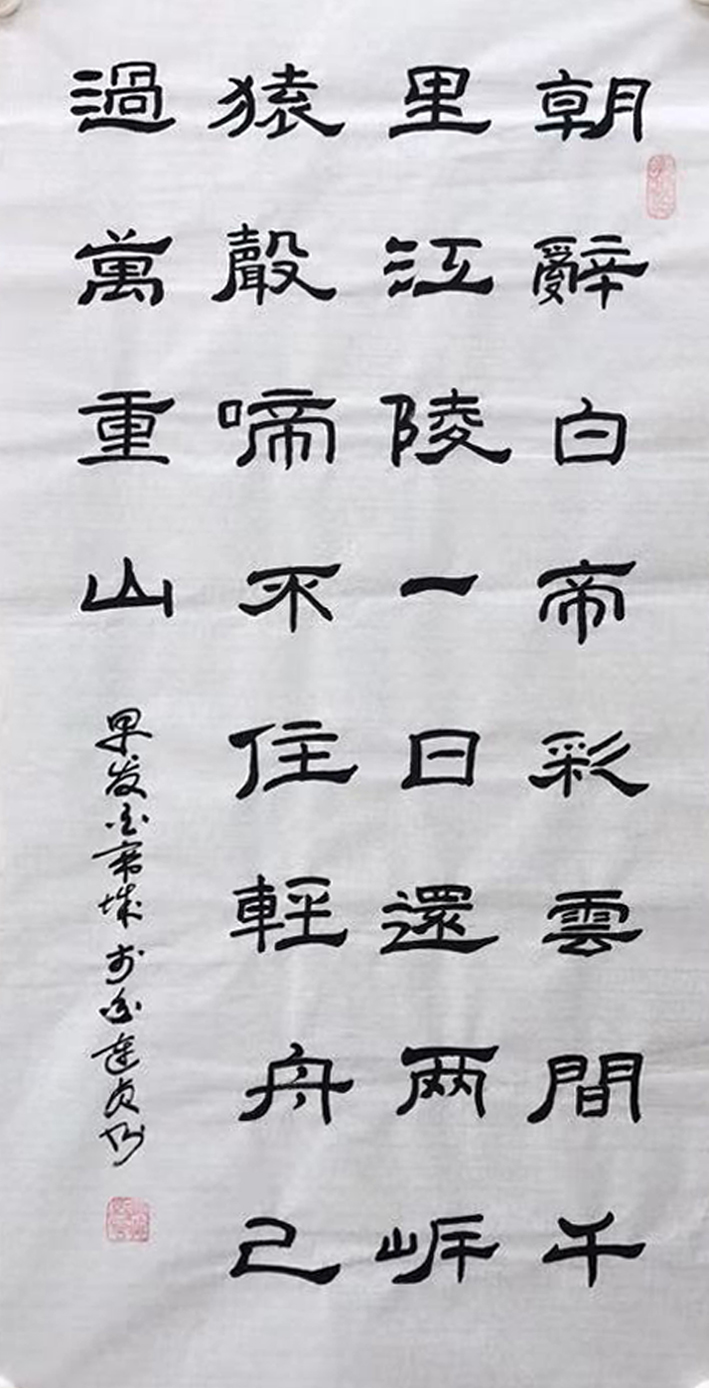 朝辭白帝彩雲間千
里江陵一日還兩岍
猿聲啼不住輕舟己
過萬重山
早发白帝城